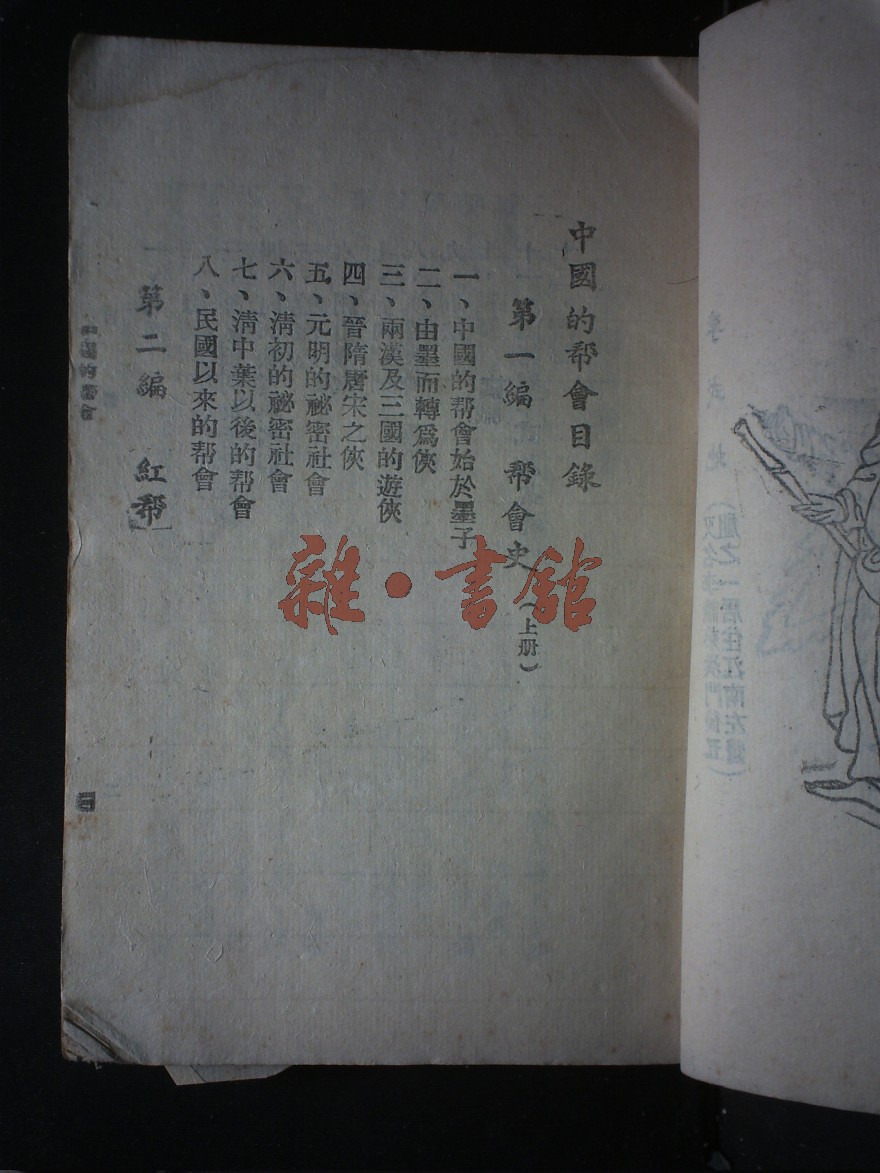 中國的帮會目錄
第一編 帮會史（上册）
一、中國的帮會始於墨子
二、由墨而轉爲俠
三、兩漢及三國的遊俠
四、晉隋唐宋之俠
五、元明的祕密社會
六、清初的祕密社會
七、清中葉以後的帮會
八、民國以來的帮會
第二編 紅帮
中國的帮會
雜·書館